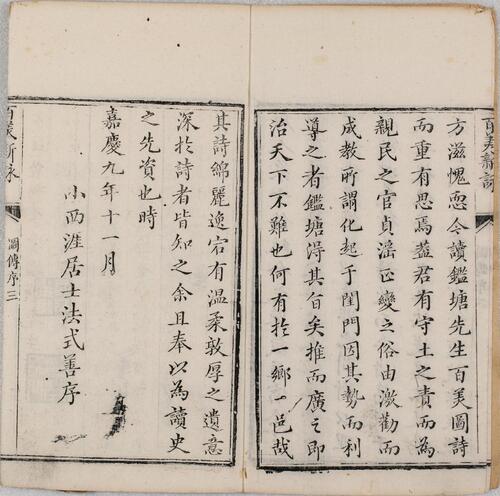 百美新詠
方滋愧恧今讀鑑塘先生百美圖詩
而重有思焉蓋君有守土之責而為
親民之官貞淫正變之俗由激勸而
成教所謂化起于閨門因其勢而利
導之者鑑塘得其旨矣推而廣之即
治天下不難也何有於一鄉一邑哉
其詩綿麗逸宕有溫柔敦厚之遺意
深於詩者皆知之余且奉以為讀史
之先資也時
嘉慶九年十一月
小西涯居士法式善序
百美新詠
圖傳序三